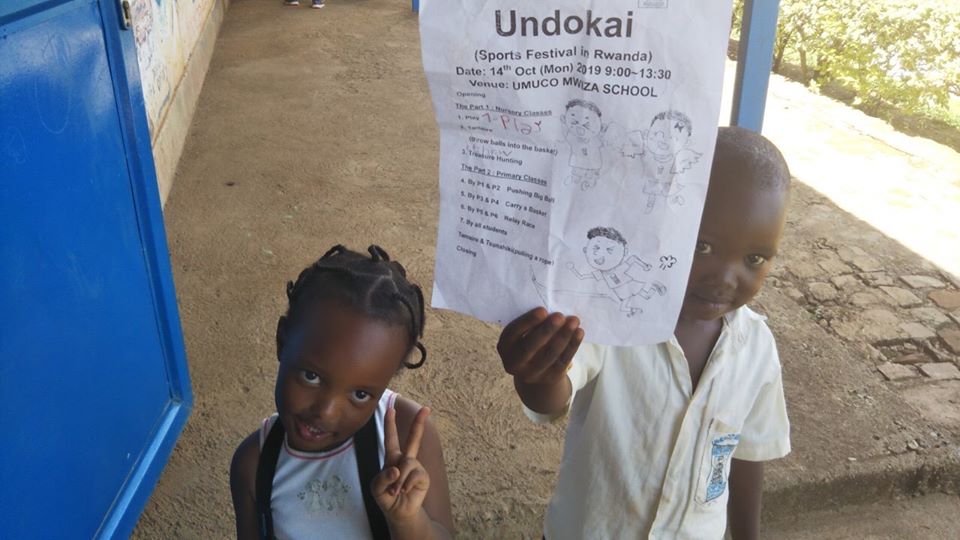 Undokai
(Sports Festival in Rwanda)
Date: 14th Oct (Mon) 2019 9:00~13:30
Venue: UMUCO MWIZA SCHOOL
Opening
The Part 1 : Nursery Classes
1. Play 1-Play
2. Tamaire
(throw balls into the basket)
3. Treasure Hunting
The Part 2 : Primary Classes
4. By P1 & P2 Pushing Big Ball
5. By P3 & P4 Carry a Basket
6. By P5 & P6 Relay Race
7. By all students
Tamaire & Tsunahiki(pulling a rope)
Closing